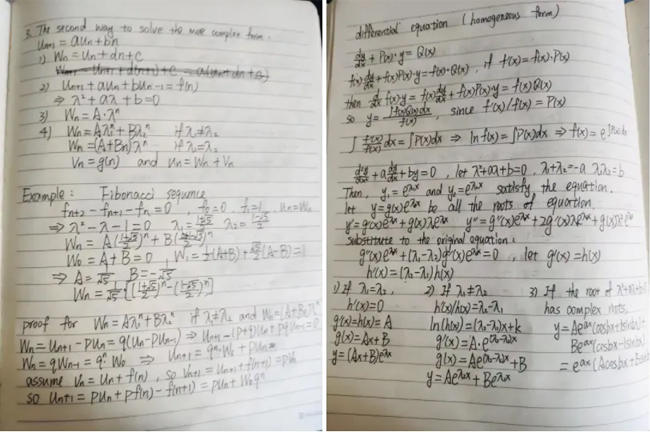 3. The second way to solve the more complex form.
Un+1 = aUn + bn
1) Wn = Un + dn + c
2) Un+1 + aUn + bUn-1 = f(n)
⇒ λ² + aλ + b = 0
3) Wn = A·λⁿ
4) Wn = Aλ₁ⁿ + Bλ₂ⁿ if λ₁≠λ₂
Wn = (A+Bn)λⁿ if λ₁=λ₂
Vn = g(n) and Un = Wn + Vn
Example: Fibonacci sequence
fn+2 - fn+1 - fn = 0, f0=0 f1=1
⇒ λ² - λ - 1 = 0 λ₁ = (1+√5)/2 λ₂ = (1-√5)/2
Wn = A((1+√5)/2)ⁿ + B((1-√5)/2)ⁿ
W0 = A + B = 0, W1 = ½(A+B) + √5/2(A-B) = 1
⇒ A = 1/√5 B = -1/√5
Wn = 1/√5[((1+√5)/2)ⁿ - ((1-√5)/2)ⁿ]
proof for Wn = Aλ₁ⁿ + Bλ₂ⁿ if λ₁≠λ₂ and Wn = (A+Bn)λⁿ
Wn = Un+1 - pUn = q(Un - pUn-1) ⇒ Un+1 - (p+q)Un + pqUn-1 = 0
Wn = qWn-1 = qⁿW0 ⇒ Un+1 = qⁿW0 + pUn
assume Vn = Un + f(n), so Vn+1 = Un+1 + f(n+1) = pVn
so Un+1 = pUn + pf(n) - f(n+1) = pUn + W0qⁿ
differential equation (homogeneous form)
dy/dx + P(x)·y = Q(x)
f(x)dy/dx + f(x)P(x)y = f(x)·Q(x), if f'(x) = f(x)·P(x)
then d/dx f(x)y = f(x)dy/dx + f(x)P(x)y = f(x)Q(x)
so y = ∫f(x)Q(x)dx / f(x), since f'(x)/f(x) = P(x)
∫ f'(x)/f(x) dx = ∫P(x)dx ⇒ ln f(x) = ∫P(x)dx ⇒ f(x) = e^∫P(x)dx
d²y/dx² + a dy/dx + by = 0, let λ²+aλ+b=0, λ₁+λ₂=-a λ₁λ₂=b
Then, y₁ = e^λ₁x and y₂ = e^λ₂x satisfy the equation.
let y = g(x)e^λ₂x be all the roots of equation
y' = g'(x)e^λ₂x + g(x)λ₂e^λ₂x y'' = g''(x)e^λ₂x + 2g'(x)λ₂e^λ₂x + g(x)λ₂²e^λ₂x
substitute to the original equation:
g''(x)e^λ₂x + (λ₂-λ₁)g'(x)e^λ₂x = 0, let g'(x) = h(x)
h'(x) = (λ₁-λ₂)h(x)
1) If λ₁=λ₂ 2) If λ₁≠λ₂ 3) If the root of λ²+aλ+b=0
h'(x)=0 h'(x)/h(x) = λ₁-λ₂ has complex roots,
g'(x)=h(x)=A ln(h(x)) = (λ₁-λ₂)x+k y = Ae^ax(cosbx+isinbx)+
g(x)=Ax+B g'(x) = A·e^(λ₁-λ₂)x Be^ax(cosbx-isinbx)
y=(Ax+B)e^λx g(x) = Ae^(λ₁-λ₂)x + B = e^ax(Acosbx+Bsinbx)
y = Ae^λ₁x + Be^λ₂x